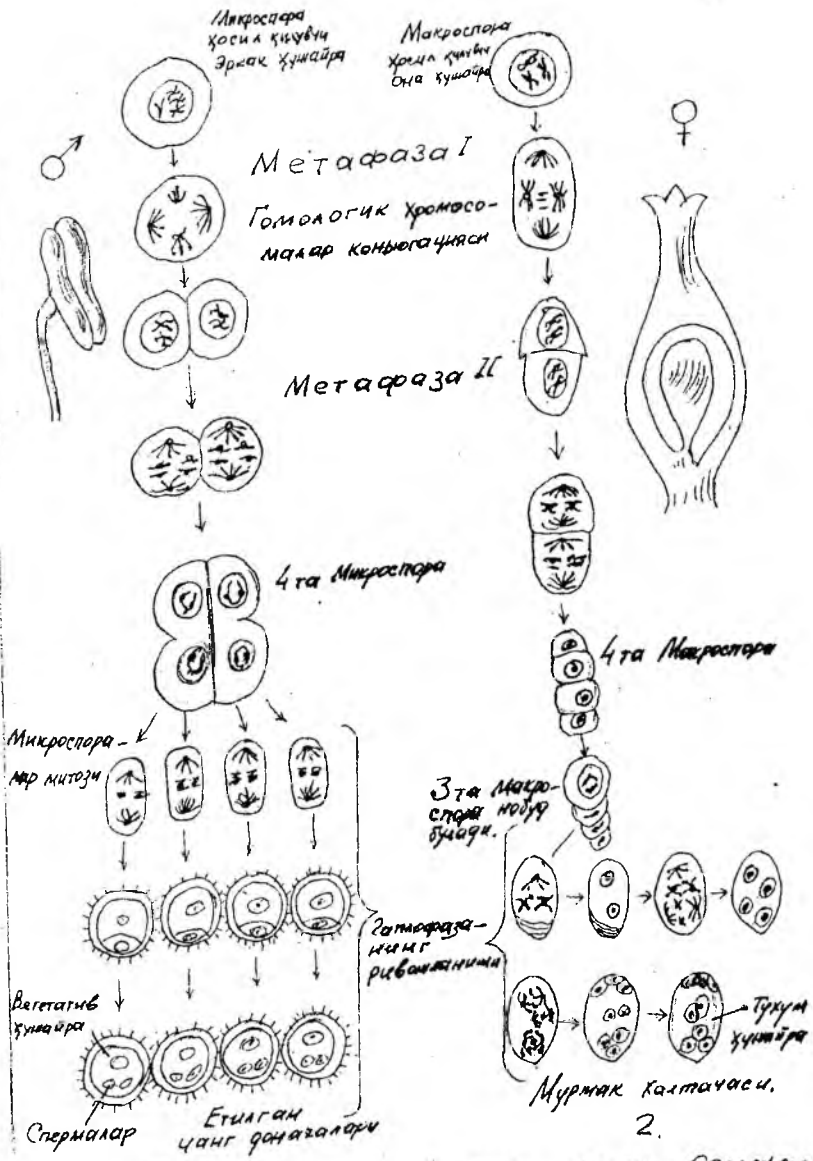 Микроспора
ҳосил қилувчи
Эркак ҳужайра
Макроспора
ҳосил қилувчи
она ҳужайра
♂
♀
Метафаза I
Гомологик хромосо-
малар коньюгацияси
Метафаза II
4 та Микроспора
4 та Макроспора
Микроспора-
лар митози
3 та Макро-
спора нобуд
булади.
Гаплофаза-
нинг
ривожланиши
Вегетатив
ҳужайра
Спермалар
Етилган
чанг доначалари
Тухум
ҳужайра
Муртак халтачаси.
2.